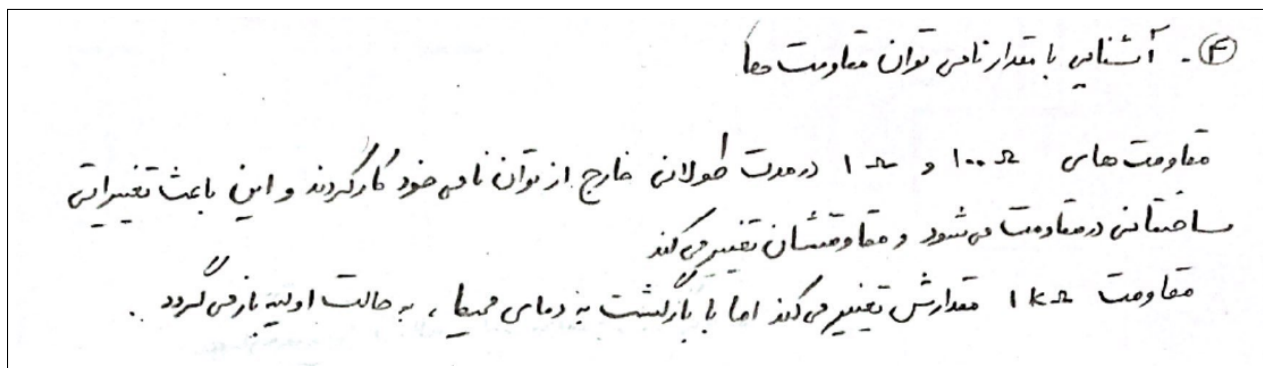 ۴- آشنایی با مقدار نامی توان مقاومت ها
مقاومت های ۱۰۰Ω و ۱Ω در مدت طولانی خارج از توان نامی خود کار کردند و این باعث تغییراتی
ساختمانی در مقاومت می شود و مقاومتشان تغییر می کند
مقاومت ۱kΩ مقدارش تغییر می کند اما با بازگشت به دمای محیط ، به حالت اولیه باز می گردد .